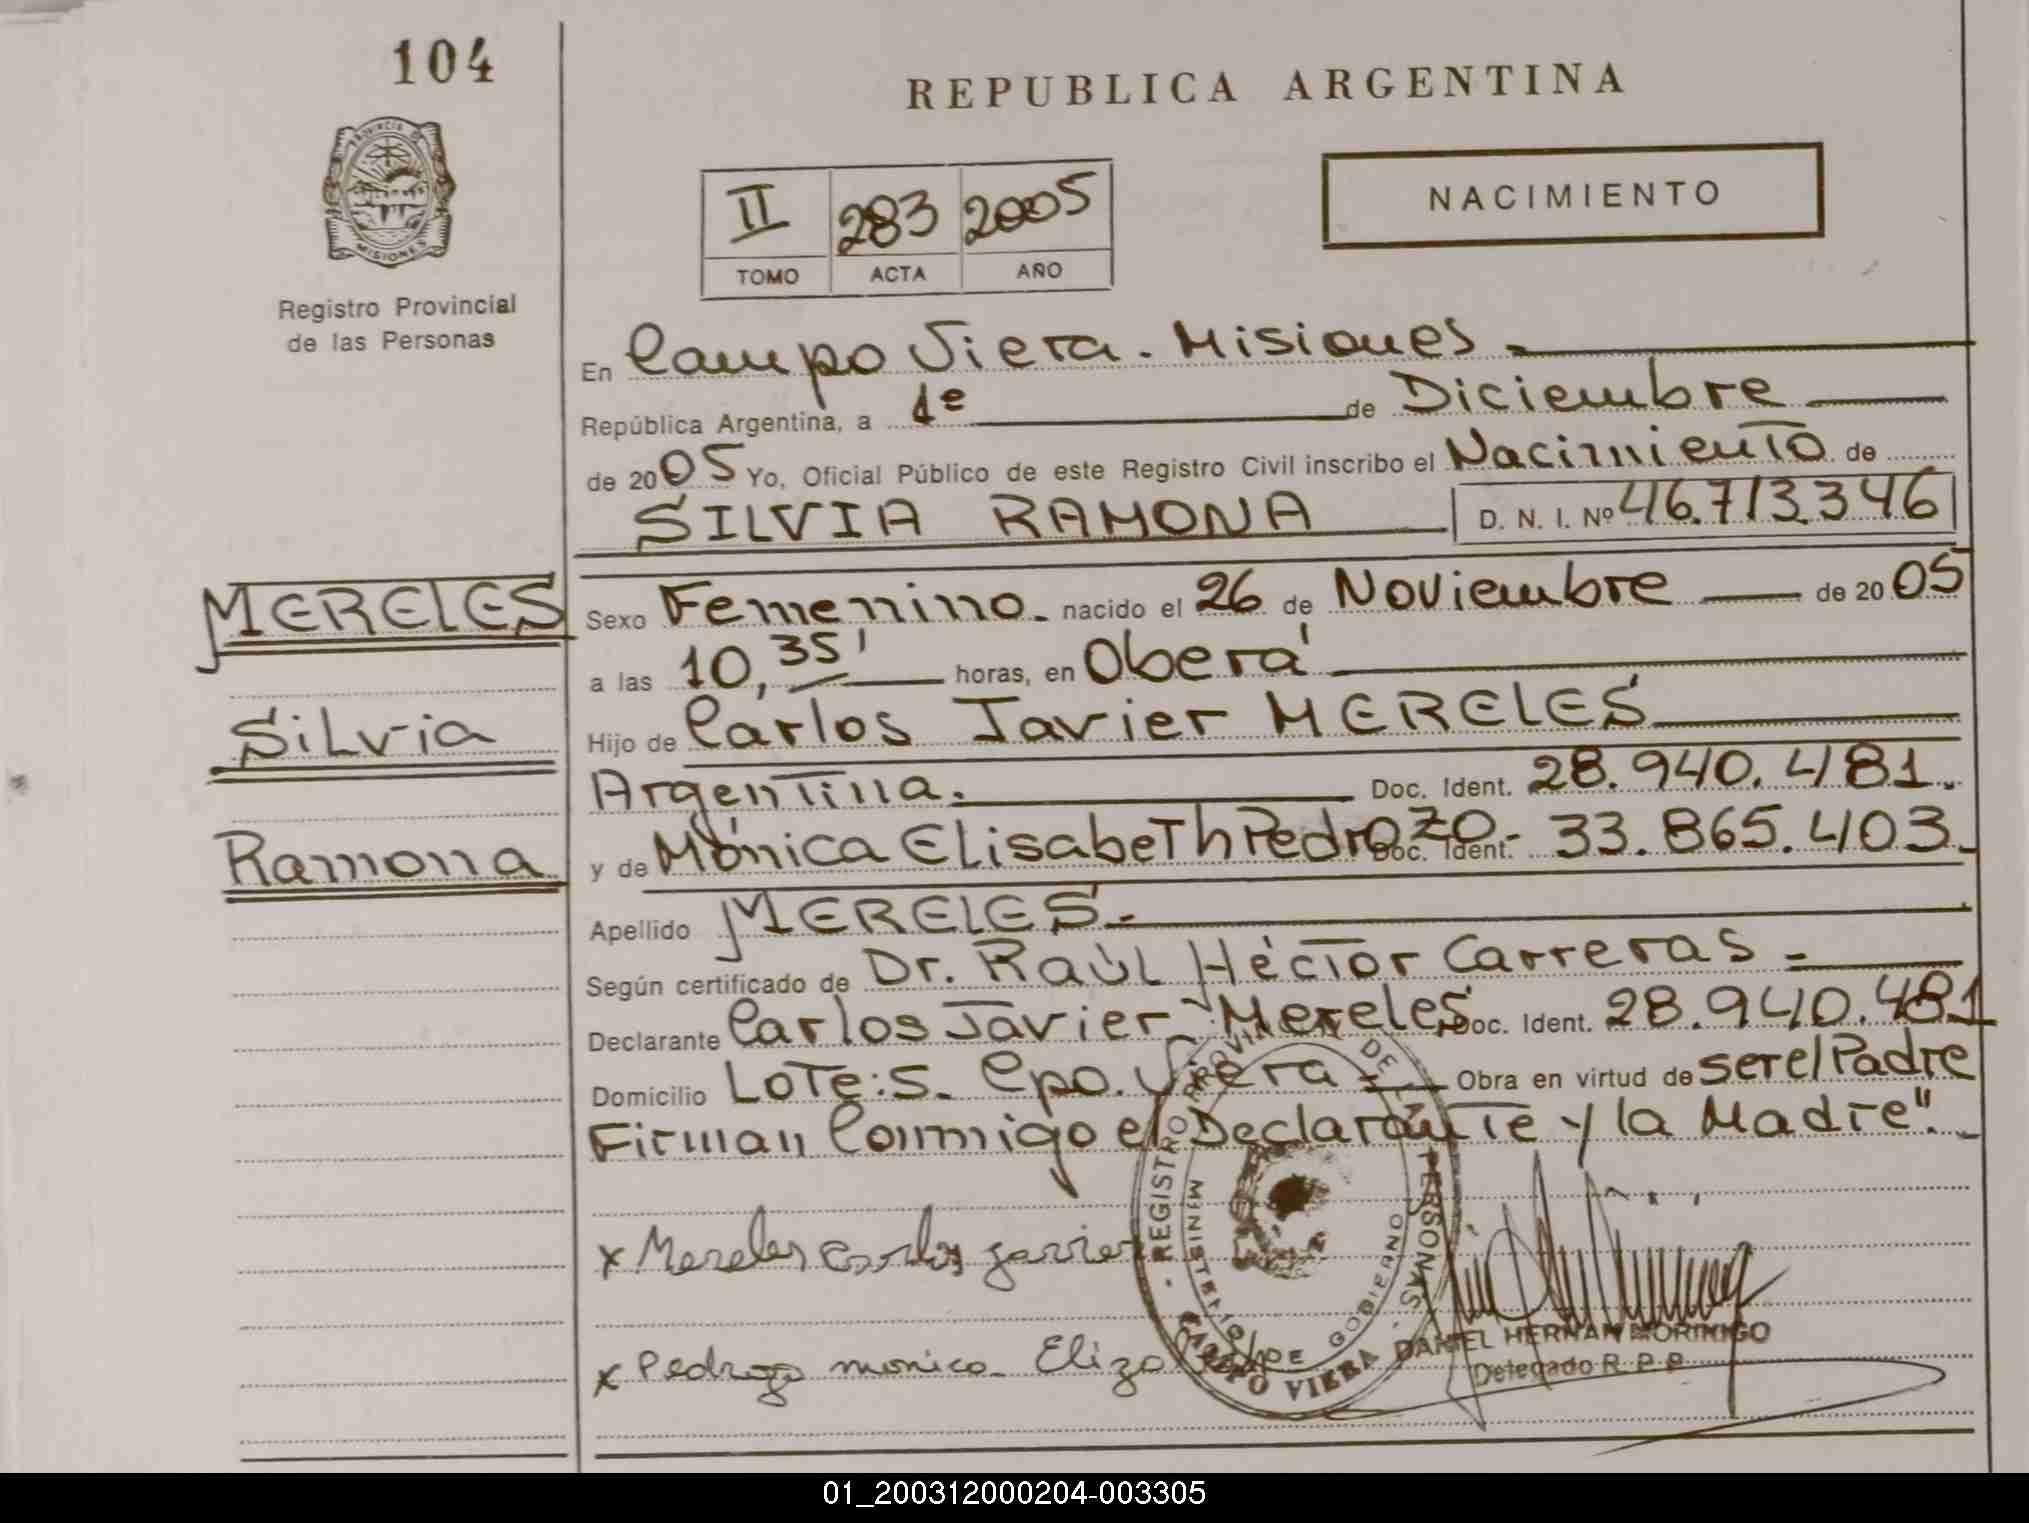 104
REPUBLICA ARGENTINA
PROVINCIA DE MISIONES
Registro Provincial
de las Personas
II 283 2005
TOMO ACTA AÑO
NACIMIENTO
En Campo Viera. Misiones
República Argentina, a 1º de Diciembre
de 2005 Yo, Oficial Público de este Registro Civil inscribo el Nacimiento de
SILVIA RAMONA D. N. I. Nº 46.713.346
MERELES
Silvia
Ramona
Sexo Femenino. nacido el 26 de Noviembre de 2005
a las 10,35' horas, en Oberá
Hijo de Carlos Javier MERELES
Argentina. Doc. Ident. 28.940.481.
y de Mónica Elisabeth Pedrozo.- Doc. Ident. 33.865.403.
Apellido MERELES.-
Según certificado de Dr. Raúl Héctor Carreras -
Declarante Carlos Javier Mereles Doc. Ident. 28.940.481
Domicilio Lote:5. Cpo. Viera Obra en virtud de ser el Padre
Firman Conmigo el Declarante y la Madre".-
x Mereles Carlos Javier
x Pedrozo monica Eliza
REGISTRO PROVINCIAL DE LAS PERSONAS
MINISTERIO DE GOBIERNO
CAMPO VIERA
DANIEL HERNAN MORINIGO
Delegado R. P. P.
01_200312000204-003305